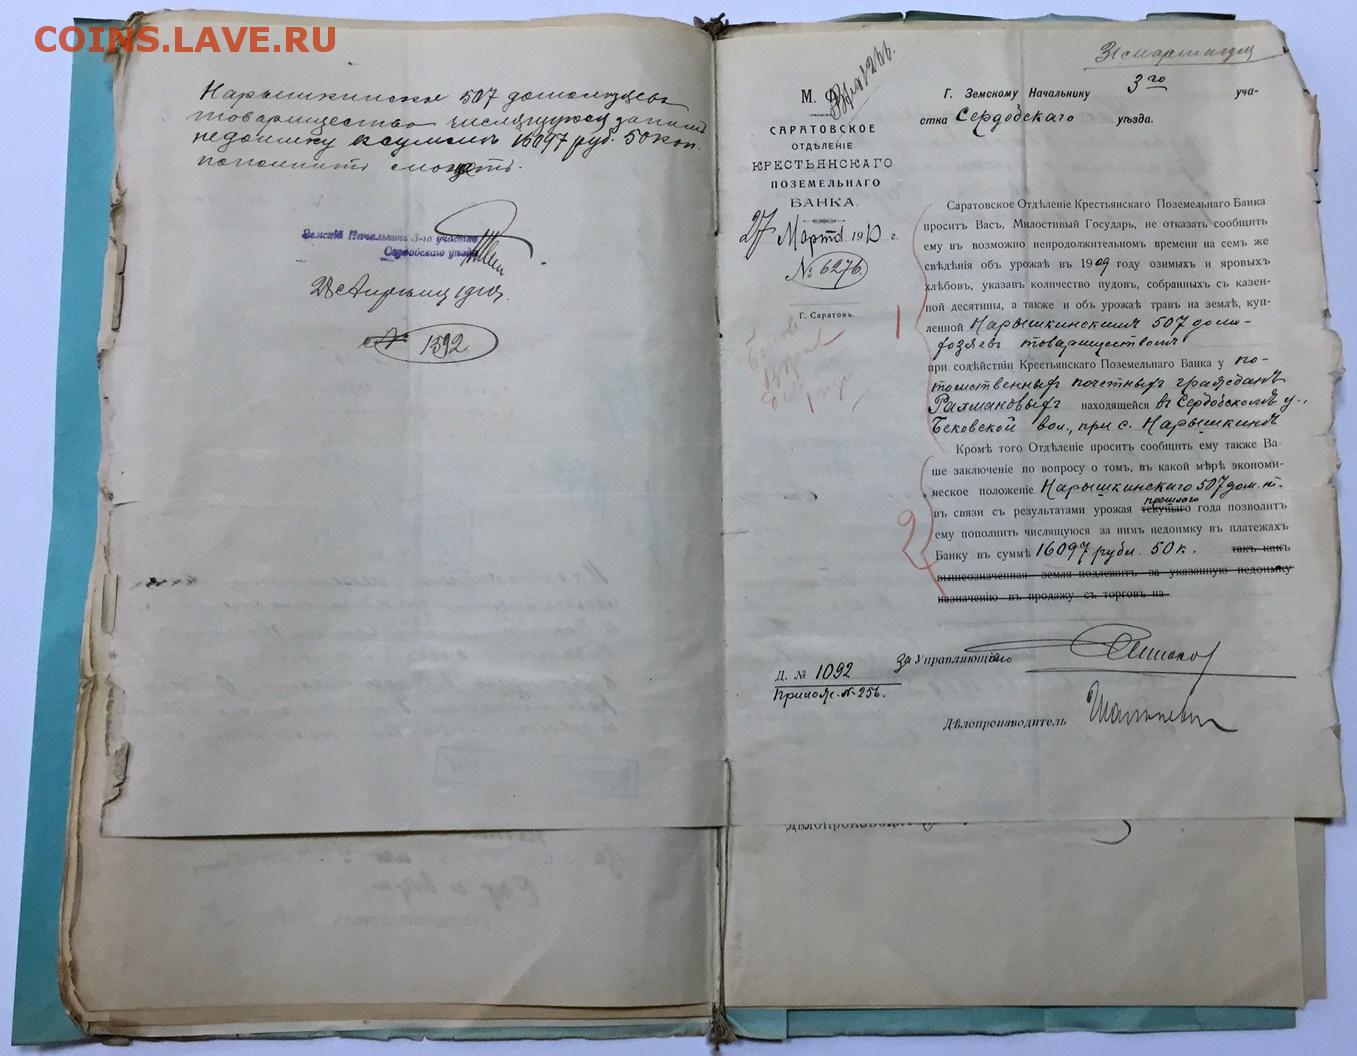 COINS.LAVE.RU
Нарышкинское 507 домохозяевъ
товарищество числящуюся за нимъ
недоимку въ суммѣ 16097 руб. 50 коп.
пополнить можетъ.
Земскій Начальникъ 3-го участка
Сердобскаго уѣзда
28 Апрѣля 1910 г.
№ 1592
31 марта
М. Ф.
САРАТОВСКОЕ
ОТДѢЛЕНІЕ
КРЕСТЬЯНСКАГО
ПОЗЕМЕЛЬНАГО
БАНКА.
27 Марта 1910 г.
№ 6276.
Г. Саратовъ.
Г. Земскому Начальнику 3го уча-
стка Сердобскаго уѣзда.
Саратовское Отдѣленіе Крестьянскаго Поземельнаго Банка
проситъ Васъ, Милостивый Государь, не отказать сообщить
ему въ возможно непродолжительномъ времени на семъ же
свѣдѣнія объ урожаѣ въ 1909 году озимыхъ и яровыхъ
хлѣбовъ, указавъ количество пудовъ, собранныхъ съ казен-
ной десятины, а также и объ урожаѣ травъ на землѣ, куп-
ленной Нарышкинскимъ 507 домо-
хозяевъ товариществомъ
при содѣйствіи Крестьянскаго Поземельнаго Банка у по-
томственныхъ почетныхъ гражданъ
Рахмановыхъ находящейся въ Сердобскомъ у.,
Бековской вол., при с. Нарышкинѣ
1
Кромѣ того Отдѣленіе проситъ сообщить ему также Ва-
ше заключеніе по вопросу о томъ, въ какой мѣрѣ экономи-
ческое положеніе Нарышкинскаго 507 дом. т.
прошлаго
въ связи съ результатами урожая текущаго года позволитъ
ему пополнить числящуюся за нимъ недоимку въ платежахъ
Банку въ суммѣ 16097 рубл. 50 к. такъ какъ
вышеозначенная земля подлежитъ за указанную недоимку
назначенію въ продажу съ торговъ на
2
за Управляющаго
Д. № 1092
Прилож. № 256.
Дѣлопроизводитель